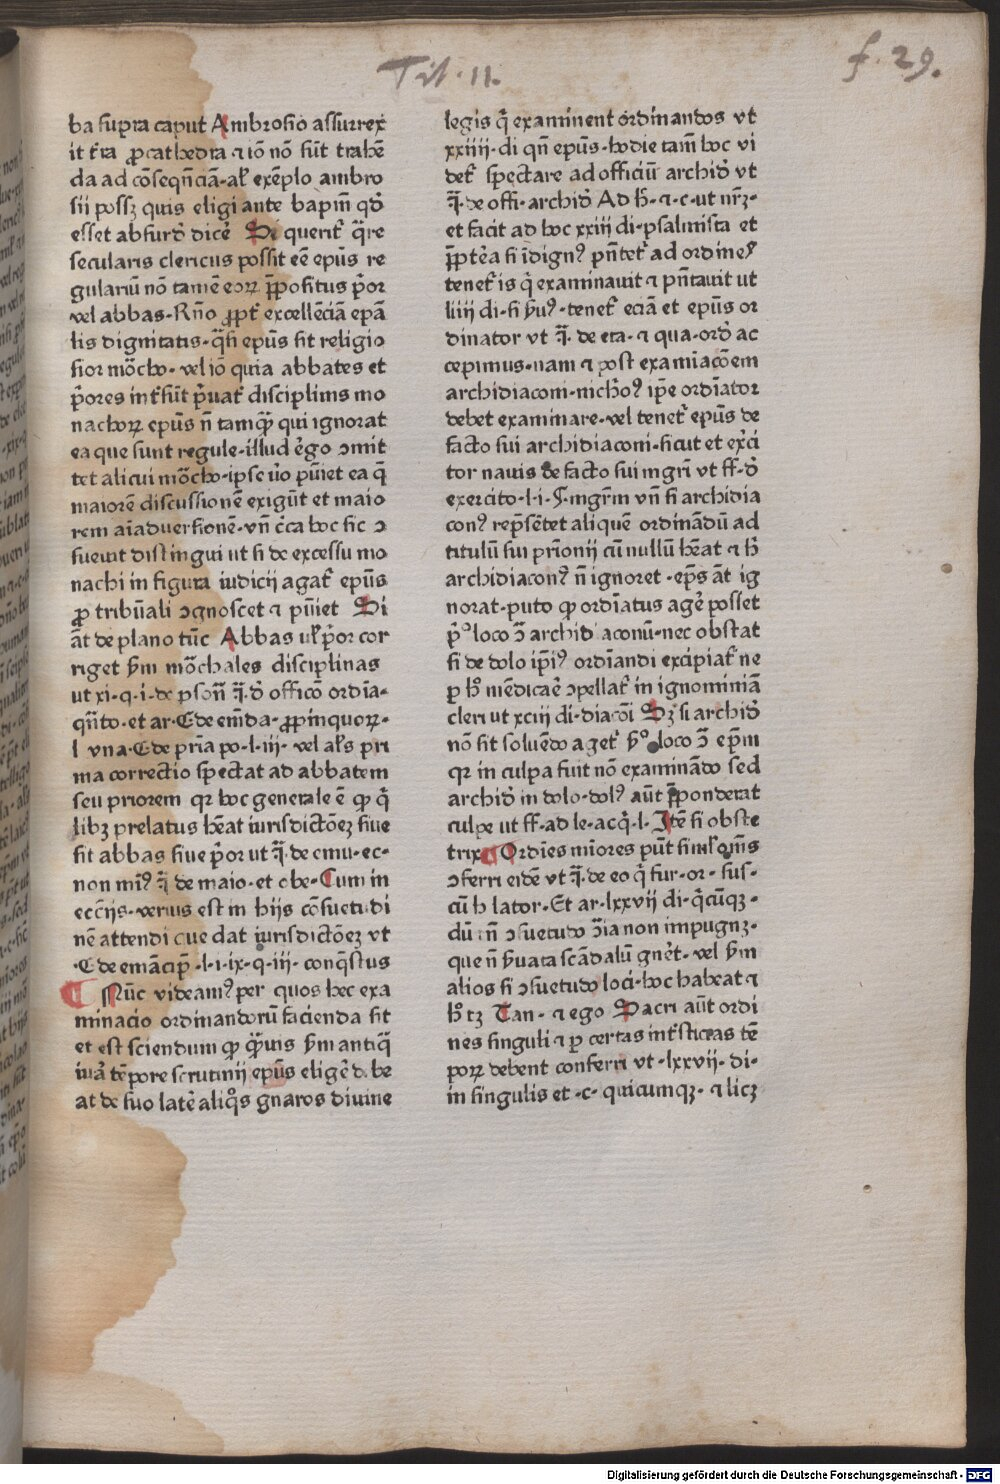 Tit. 11.
f. 29.
ba supra caput Ambrosio assurrex
it t̄ra ꝓ cathedra ⁊ iõ nõ sūt trahē
da ad cõseqñciā· al' exẽplo ambro
sii poss₃ quis eligi ante bapm̄ qđ
esset absurđ dicẽ Si querit᷑ q̄re
secularis clericus possit eẽ epūs re
gulariū nõ tamẽ eoꝝ p̄positus p̄or
vel abbas· Rño ꝓpt̄ excellẽciā epā
lis dignitatis· q̄si epūs sit religio
sior mõcho· vel iõ quia abbates et
p̄ores int̄sūt p̄uat᷑ disciplinis mo
nachoꝝ epūs ñ tamq̄ qui ignorat
ea que sunt regule· illud ẽgo ɔmit
tet alicui mõcho· ipse ũo pūiet ea q̄
maiorẽ discussionẽ exigūt et maio
rem aĩaduersionẽ· vñ c̄ca hoc sic ɔ
sueuit distingui ut si de excessu mo
nachi in figura iudicii agat᷑ epūs
ꝓ tribūali ɔgnoscet ⁊ pūiet Si
āt de plano tūc Abbas ul' p̄or cor
riget s̄m mõchales disciplinas
ut xi· q· i· de ꝑsoñ q̄· đ officõ ordīa·
qñto· et ar· C de em̄da· ꝓpinquoꝝ·
l vna· C de pr̄ia po· l· iii· vel al's pri
ma correctio spectat ad abbatem
seu priorem qꝛ hoc generale ẽ ꝙ q̄
lib₃ prelatus hēat iurisdictõe₃ siue
sit abbas siue p̄or ut q̄· de emu· ec·
non miꝰ q̄ de maio· et obe· Cum in
ecc̄ijs· verius est in hijs cõsuetudi
nẽ attendi que dat iurisdictõe₃ vt
·C de emācip̄· l· i· ix· q· iii· conq̄stus
¶ Nūc videamꝰ per quos hec exa
minacio ordinandorū facienda sit
et est sciendum ꝙ q̄uis s̄m antiq̄
iuā tẽpore scrutinij epūs eligẽ debe
at de suo latẽ aliq̊s gnaros diuine
legis q̄ examinent ordinandos vt
xxiiii· di qñ epūs· hodie tam̄ hoc vi
det᷑ spectare ad officiū archiđ vt
q̄· de offi· archiđ Ad h̄· ⁊· c· ut nr̄₃·
et facit ad hoc xxiii di· psalmista et
p̄pt̄ea si īdignꝰ pñtet᷑ ad ordineſ
tenet᷑ is q̄ examinauit ⁊ pñtauit ut
liiii di· si s̄uꝰ· tenet᷑ eciā et epūs or
dinator vt q̄· de eta· ⁊ qua· orđ ac
cepimus· nam ⁊ post examīacõem
archidiaconi· nichoꝰ ip̄e ordīator
debet examinare· vel tenet᷑ epūs de
facto sui archidiaconi· sicut et ex̄ci
tor nauis de facto sui mgr̄i vt ff· đ
exercito· l· i· §· mgr̄m vñ si archidia
conꝰ rep̄sẽtet aliquẽ ordinādū ad
titulū sui pr̄ionij cū nullū hēat ⁊ h̄
archidiaconꝰ ñ ignoret· ep̄s āt ig
norat· puto ꝙ ordīatus agẽ posset
p̄ꝰ loco ɔ̄ archidiaconū· nec obstat
si de dolo ip̄iꝰ ordīandi excipiat᷑ ne
ꝑ h̊ mẽdicaẽ ɔpellat᷑ in ignominiā
cleri ut xciij di· diacõi S₃ si archiđ
nõ sit soluẽdo aget᷑ s̄ꝰ loco ɔ̄ ep̄m
qꝛ in culpa fuit nõ examinādo sed
archiđ in dolo· dolꝰ aūt p̄ponderat
culpe ut ff· ad le· acq̄· l· Itẽ si obste
trix ¶ Ordīes mīores pūt siml' oīns
ɔferri eidẽ vt q̄· de eo q̄ fur· or· sus·
cū h̄ lator· Et ar· lxxvij di· q̄cūq₃·
dū tñ ɔsuetudo ɔ̄ia non impugn₃·
que ñ s̄uata scādalū gñet· vel s̄m
alios si ɔsuetudo loci· hoc habeat ⁊
h̊ t₃ Tan· ⁊ ego Sacri aūt ordi
nes singuli ⁊ ꝑ certas int̄sticias tẽ
poꝝ debent conferri vt· lxxvii· di·
in singulis et· c· quicumq₃· ⁊ lic₃
Digitalisierung gefördert durch die Deutsche Forschungsgemeinschaft - DFG